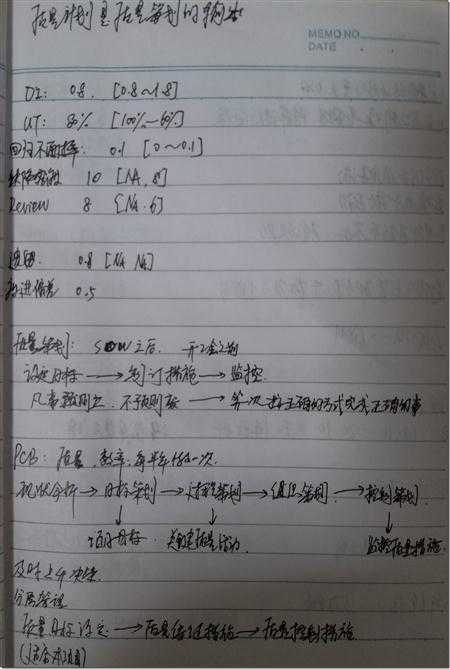 质量计划是质量策划的输出
MEMO NO.
DATE
DI: 0.8 [0.8~1.8]
UT: 80% [100%~60%]
回归不通过率: 0.1 [0~0.1]
缺陷密度 10 [NA, 8]
Review 8 [NA. 6]
0.8 [NA NA]
进偏差 0.5
质量策划: SOW之后. 开工会之前
设定目标 → 制订措施 → 监控.
凡事预则立. 不预则废 → 第一次就以正确的方式完成正确的事
PCB: 质量、效率. 每半年 一次.
现状分析 → 目标策划 → 过程策划 → 组织策划. → 控制策划.
项目目标. 关键质量活动. 监控质量措施.
及时上升决策.
分层管理
质量目标设定 → 质量保证措施 → 质量控制措施
(结合本项目)